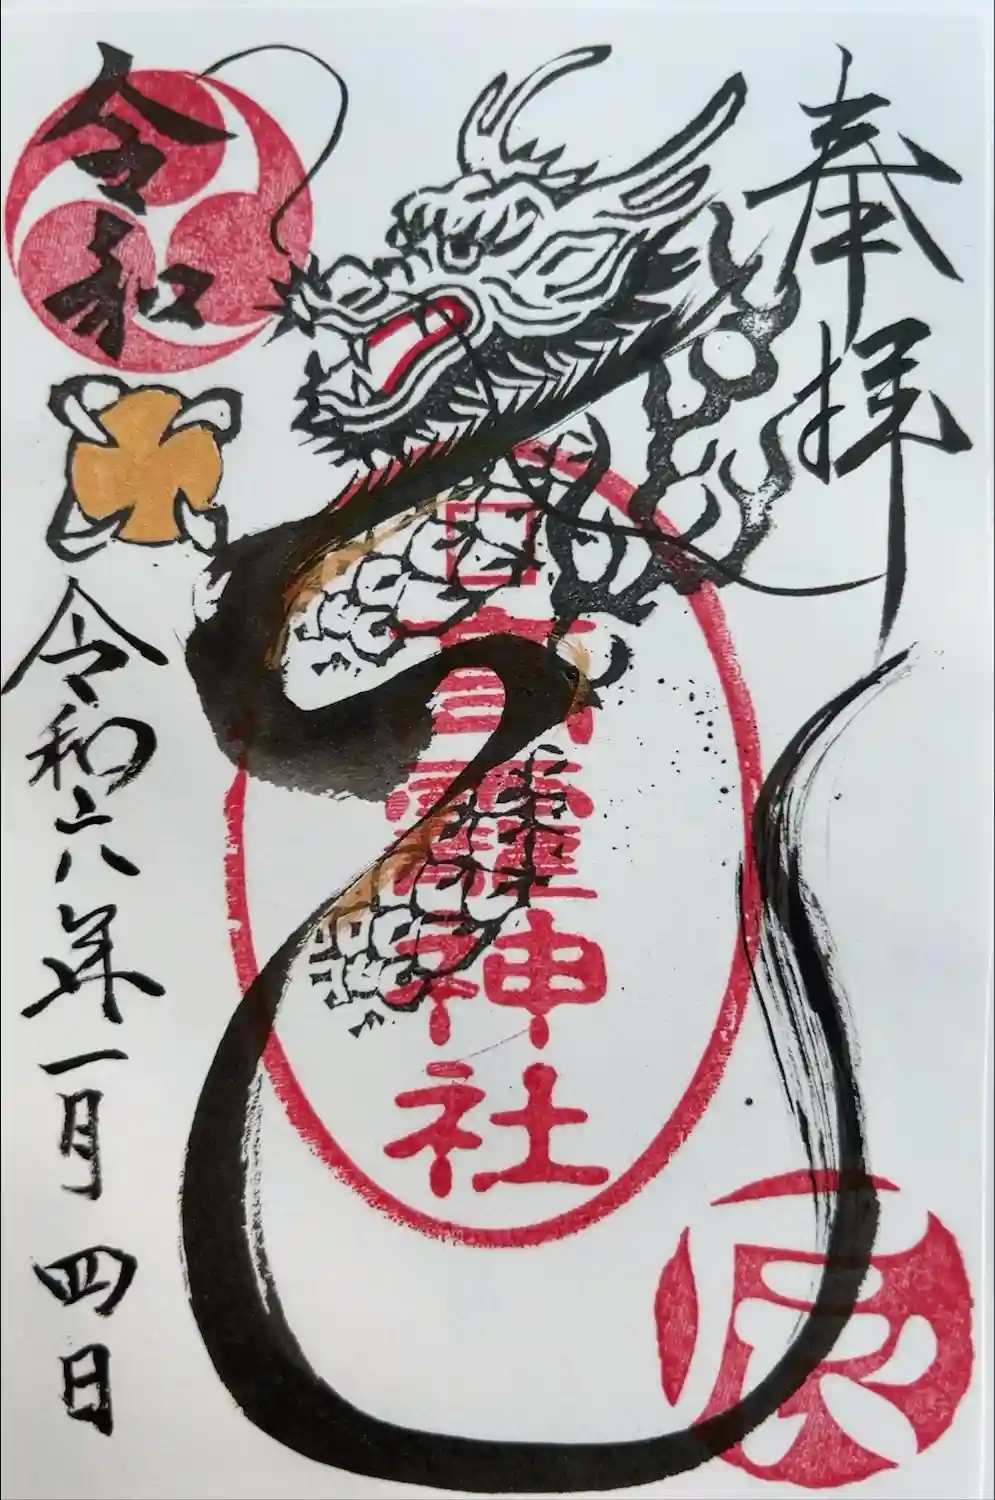 奉拝
神社
辰
令和
令和六年一月四日